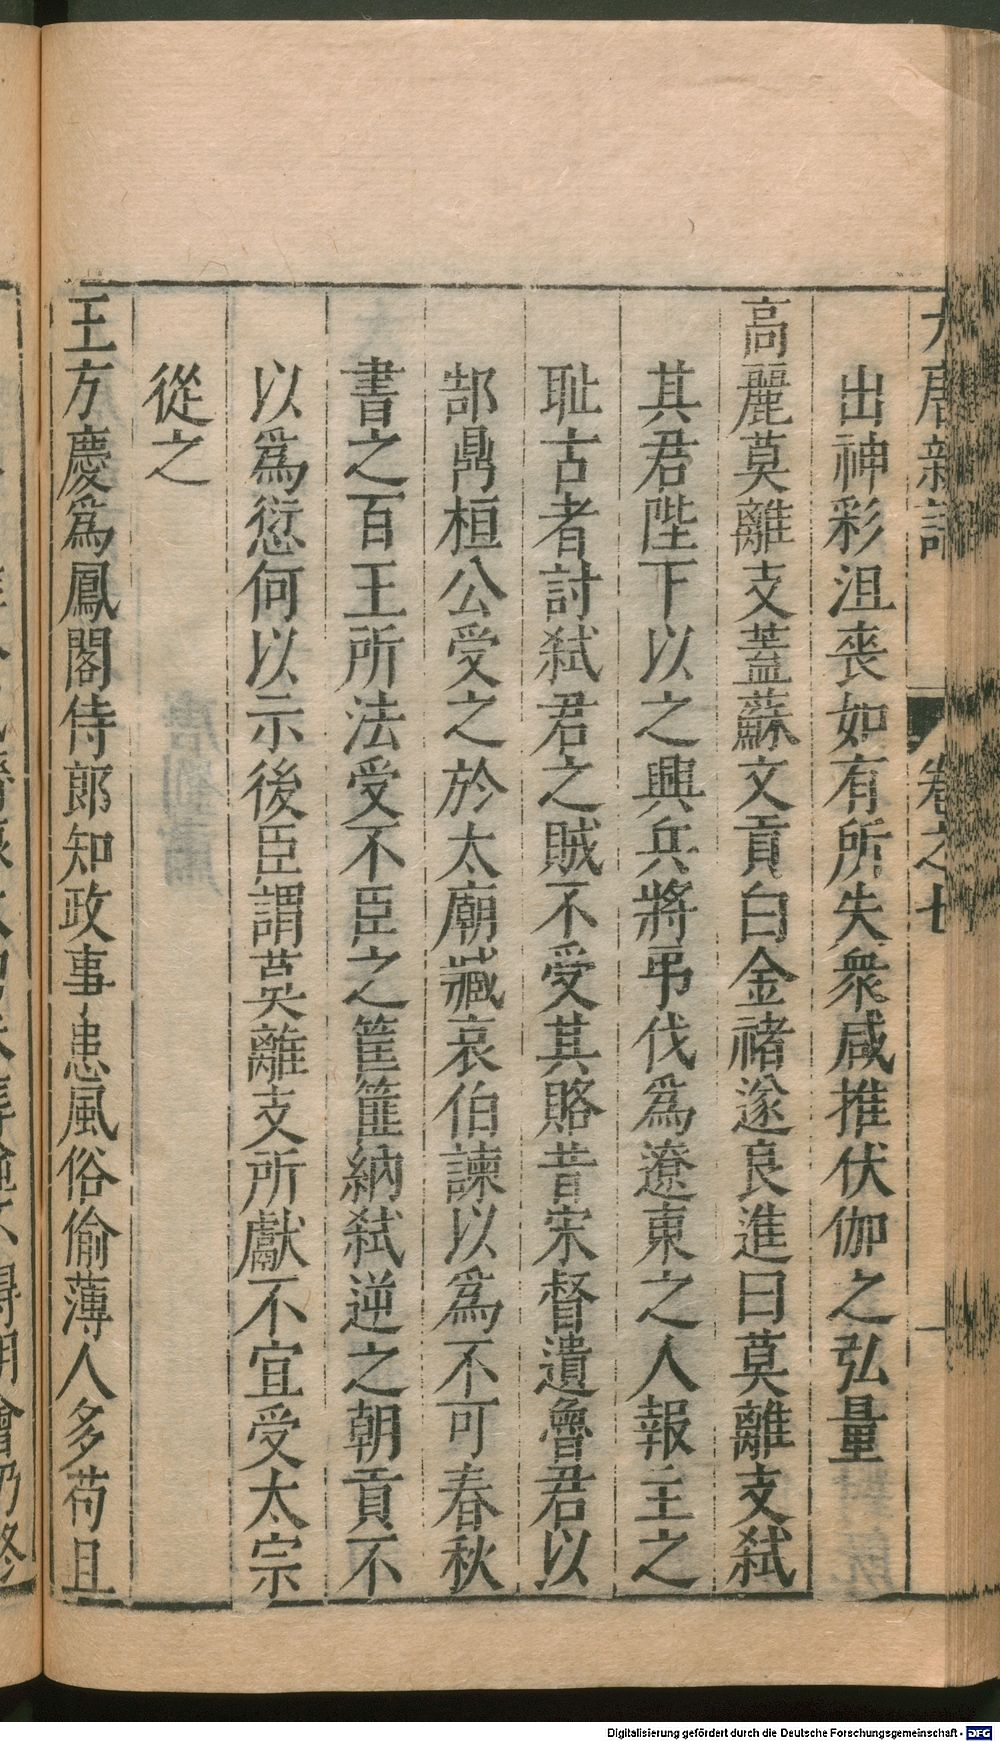 大唐新語 卷之七 一
出神彩沮喪如有所失衆咸推伏伽之弘量
高麗莫離支蓋蘇文貢白金禇遂良進曰莫離支弑
其君陛下以之興兵將弔伐爲遼東之人報主之
耻古者討弑君之賊不受其賂昔宋督遺魯君以
郜鼎桓公受之於太廟臧哀伯諫以爲不可春秋
書之百王所法受不臣之筐篚納弑逆之朝貢不
以爲愆何以示後臣謂莫離支所獻不宜受太宗
從之
王方慶爲鳳閣侍郎知政事患風俗偷薄人多苟且
Digitalisierung gefördert durch die Deutsche Forschungsgemeinschaft - DFG